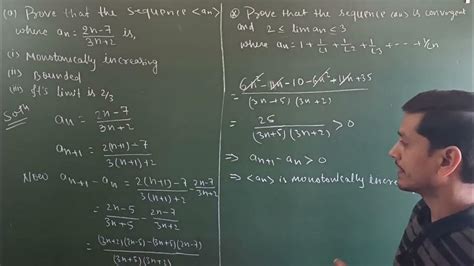 (a) Prove that the sequence <an>
where an = 2n-7/3n+2 is,
(i) Monotonically increasing
(ii) Bounded
(iii) It's limit is 2/3
Soln
an = 2n-7/3n+2
an+1 = 2(n+1)-7/3(n+1)+2
Now an+1 - an = 2(n+1)-7/3(n+1)+2 - 2n-7/3n+2
= 2n-5/3n+5 - 2n-7/3n+2
= (3n+2)(2n-5)-(3n+5)(2n-7)/(3n+5)(3n+2)
Prove that the sequence <an> is convergent
and 2 ≤ lim an ≤ 3
where an = 1 + 1/L1 + 1/L2 + 1/L3 + --- + 1/Ln
= 6n²-11n-10-6n²+11n+35/(3n+5)(3n+2)
= 25/(3n+5)(3n+2) > 0
⇒ an+1 - an > 0
⇒ <an> is monotonically increa